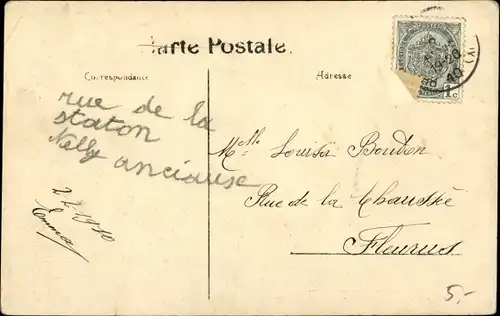 Carte Postale.
Correspondance
Adresse
rue de la
staton
Nelly anciause
2 2 1910
Emma
Melle Louisa Boudon
Rue de la Chaussée
Fleurus
1c
5.-